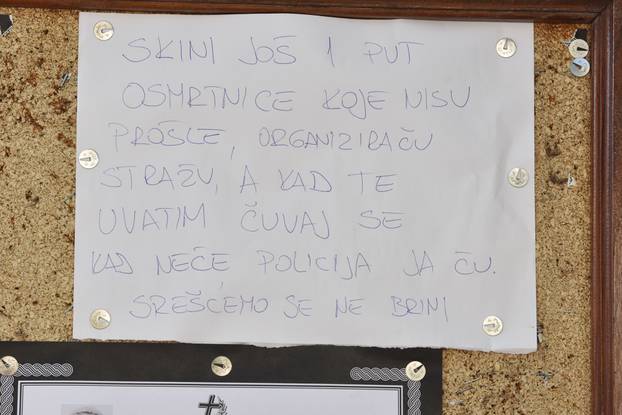 SKINI JOŠ 1 PUT
OSMRTNICE KOJE NISU
PROŠLE, ORGANIZIRAČU
STRAŽU, A KAD TE
UVATIM ČUVAJ SE
KAD NEČE POLICIJA JA ČU.
SREŠĆEMO SE NE BRINI